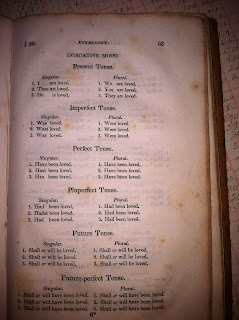 § 98. ETYMOLOGY. 63
INDICATIVE MOOD.
Present Tense.
Singular. Plural.
1. I am loved. 1. We are loved.
2. Thou art loved. 2. You are loved.
3. He is loved. 3. They are loved.
Imperfect Tense.
Singular. Plural.
1. Was loved. 1. Were loved.
2. Wast loved. 2. Were loved.
3. Was loved. 3. Were loved.
Perfect Tense.
Singular. Plural.
1. Have been loved. 1. Have been loved.
2. Hast been loved. 2. Have been loved.
3. Has been loved. 3. Have been loved.
Pluperfect Tense.
Singular. Plural.
1. Had been loved. 1. Had been loved.
2. Hadst been loved. 2. Had been loved.
3. Had been loved. 3. Had been loved.
Future Tense.
Singular. Plural.
1. Shall or will be loved. 1. Shall or will be loved.
2. Shall or will be loved. 2. Shall or will be loved.
3. Shall or will be loved. 3. Shall or will be loved.
Future-perfect Tense.
Singular. Plural.
1. Shall or will have been loved. 1. Shall or will have been loved.
2. Shall or will have been loved. 2. Shall or will have been loved.
3. Shall or will have been loved. 3. Shall or will have been loved.